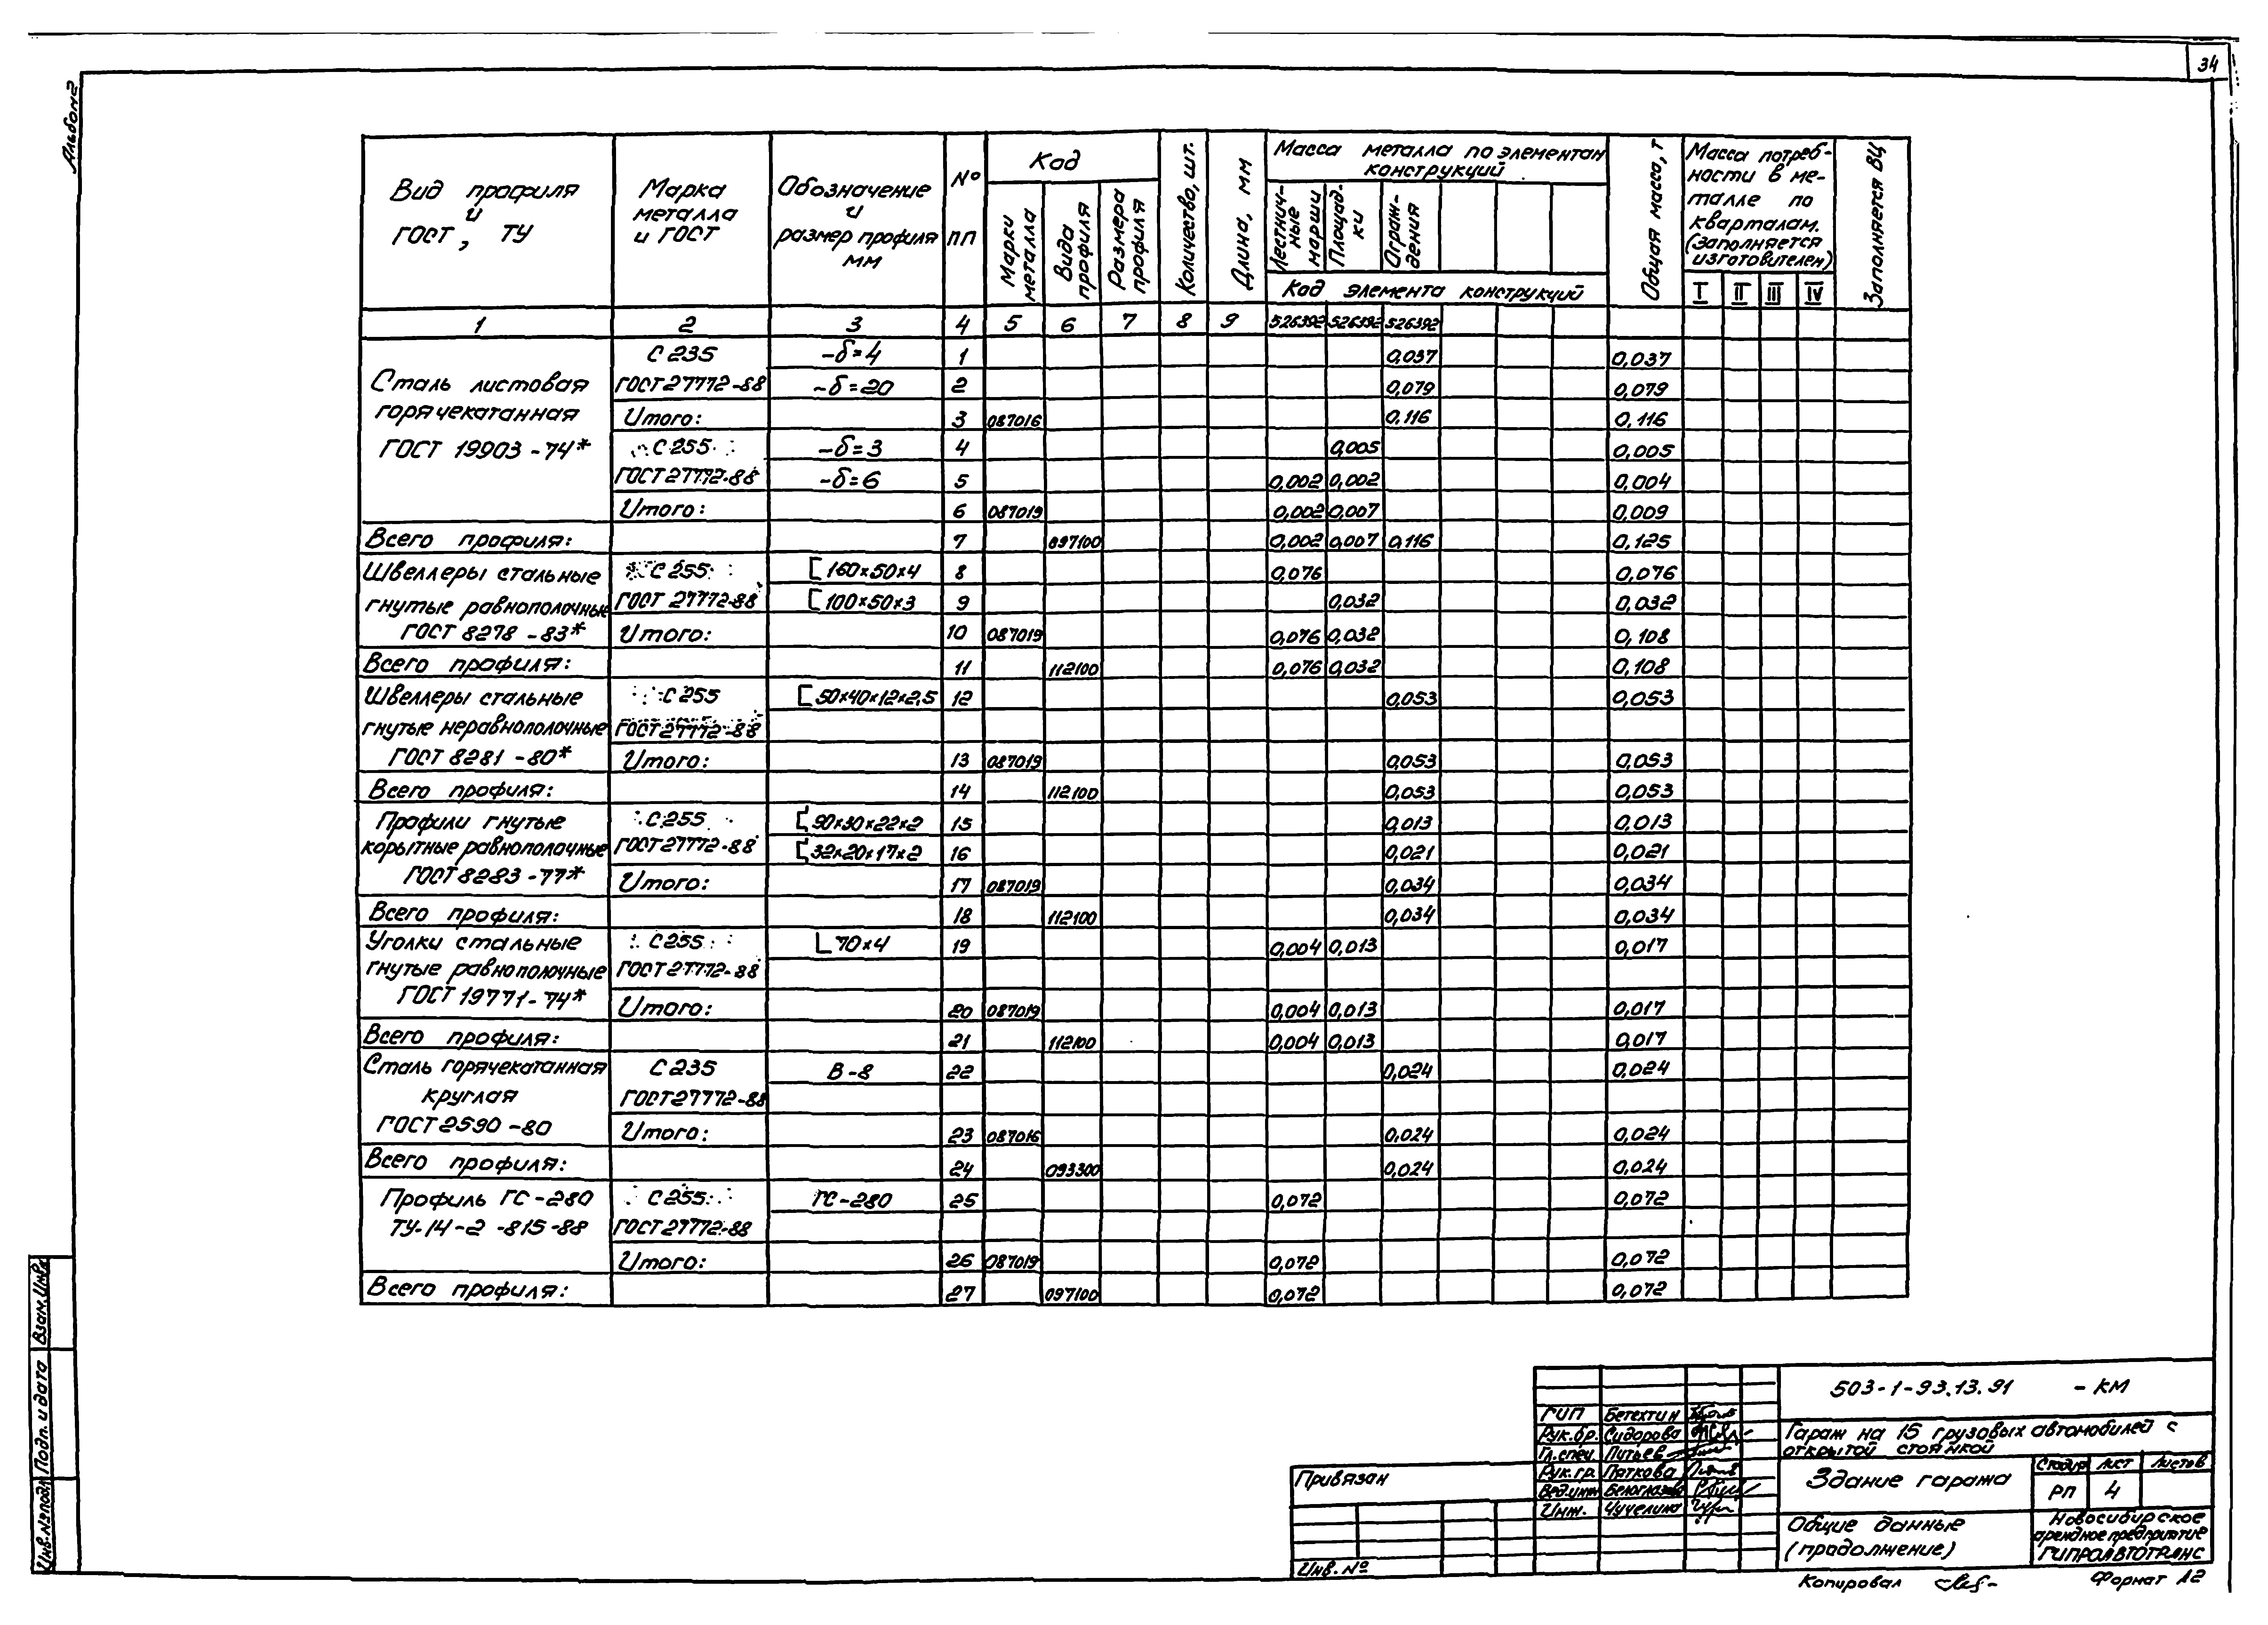 34
Альбом 2
Вид профиля и ГОСТ, ТУ
Марка металла и ГОСТ
Обозначение и размер профиля мм
№ пп
Код
Марки металла
Вида профиля
Размера профиля
Количество, шт.
Длина, мм
Масса металла по элементам конструкций
Лестнич-ные марши
Площад-ки
Ограж-дения
Код элемента конструкций
Общая масса, т
Масса потреб-ности в ме-талле по кварталам. (Заполняется изготовителем)
I II III IV
Заполняется ВЦ
1 2 3 4 5 6 7 8 9 526392 526392 526392
С 235 -δ=4 1 0,037 0,037
Сталь листовая ГОСТ 27772-88 -δ=20 2 0,079 0,079
горячекатанная Итого: 3 087016 0,116 0,116
ГОСТ 19903-74* С 255 -δ=3 4 0,005 0,005
ГОСТ 27772-88 -δ=6 5 0,002 0,002 0,004
Итого: 6 087019 0,002 0,007 0,009
Всего профиля: 7 097100 0,002 0,007 0,116 0,125
Швеллеры стальные С 255 [160×50×4 8 0,076 0,076
гнутые равнополочные ГОСТ 27772-88 [100×50×3 9 0,032 0,032
ГОСТ 8278-83* Итого: 10 087019 0,076 0,032 0,108
Всего профиля: 11 112100 0,076 0,032 0,108
Швеллеры стальные С 255 [50×40×12×2,5 12 0,053 0,053
гнутые неравнополочные ГОСТ 27772-88
ГОСТ 8281-80* Итого: 13 087019 0,053 0,053
Всего профиля: 14 112100 0,053 0,053
Профили гнутые С 255 [90×30×22×2 15 0,013 0,013
корытные равнополочные ГОСТ 27772-88 [32×20×17×2 16 0,021 0,021
ГОСТ 8283-77* Итого: 17 087019 0,034 0,034
Всего профиля: 18 112100 0,034 0,034
Уголки стальные С 255 ∟70×4 19 0,004 0,013 0,017
гнутые равнополочные ГОСТ 27772-88
ГОСТ 19771-74* Итого: 20 087019 0,004 0,013 0,017
Всего профиля: 21 112100 0,004 0,013 0,017
Сталь горячекатанная С 235 В-8 22 0,024 0,024
круглая ГОСТ 27772-88
ГОСТ 2590-80 Итого: 23 087016 0,024 0,024
Всего профиля: 24 093300 0,024 0,024
Профиль ГС-280 С 255 ГС-280 25 0,072 0,072
ТУ-14-2-815-88 ГОСТ 27772-88
Итого: 26 087019 0,072 0,072
Всего профиля: 27 097100 0,072 0,072
Взам. Инв.
Подп. и дата
Инв. № подл.
Привязан
Инв. №
ГИП Бетехтин
Рук. бр. Сидорова
Гл. спец. Питьев
Рук. гр. Пяткова
Вед. инж.
Инж. Чучелина
503-1-93.13.91 -КМ
Гараж на 15 грузовых автомобилей с
открытой стоянкой
Здание гаража
Стадия Лист Листов
РП 4
Общие данные
(продолжение)
Новосибирское
арендное предприятие
ГИПРОАВТОТРАНС
Копировал
Формат А2